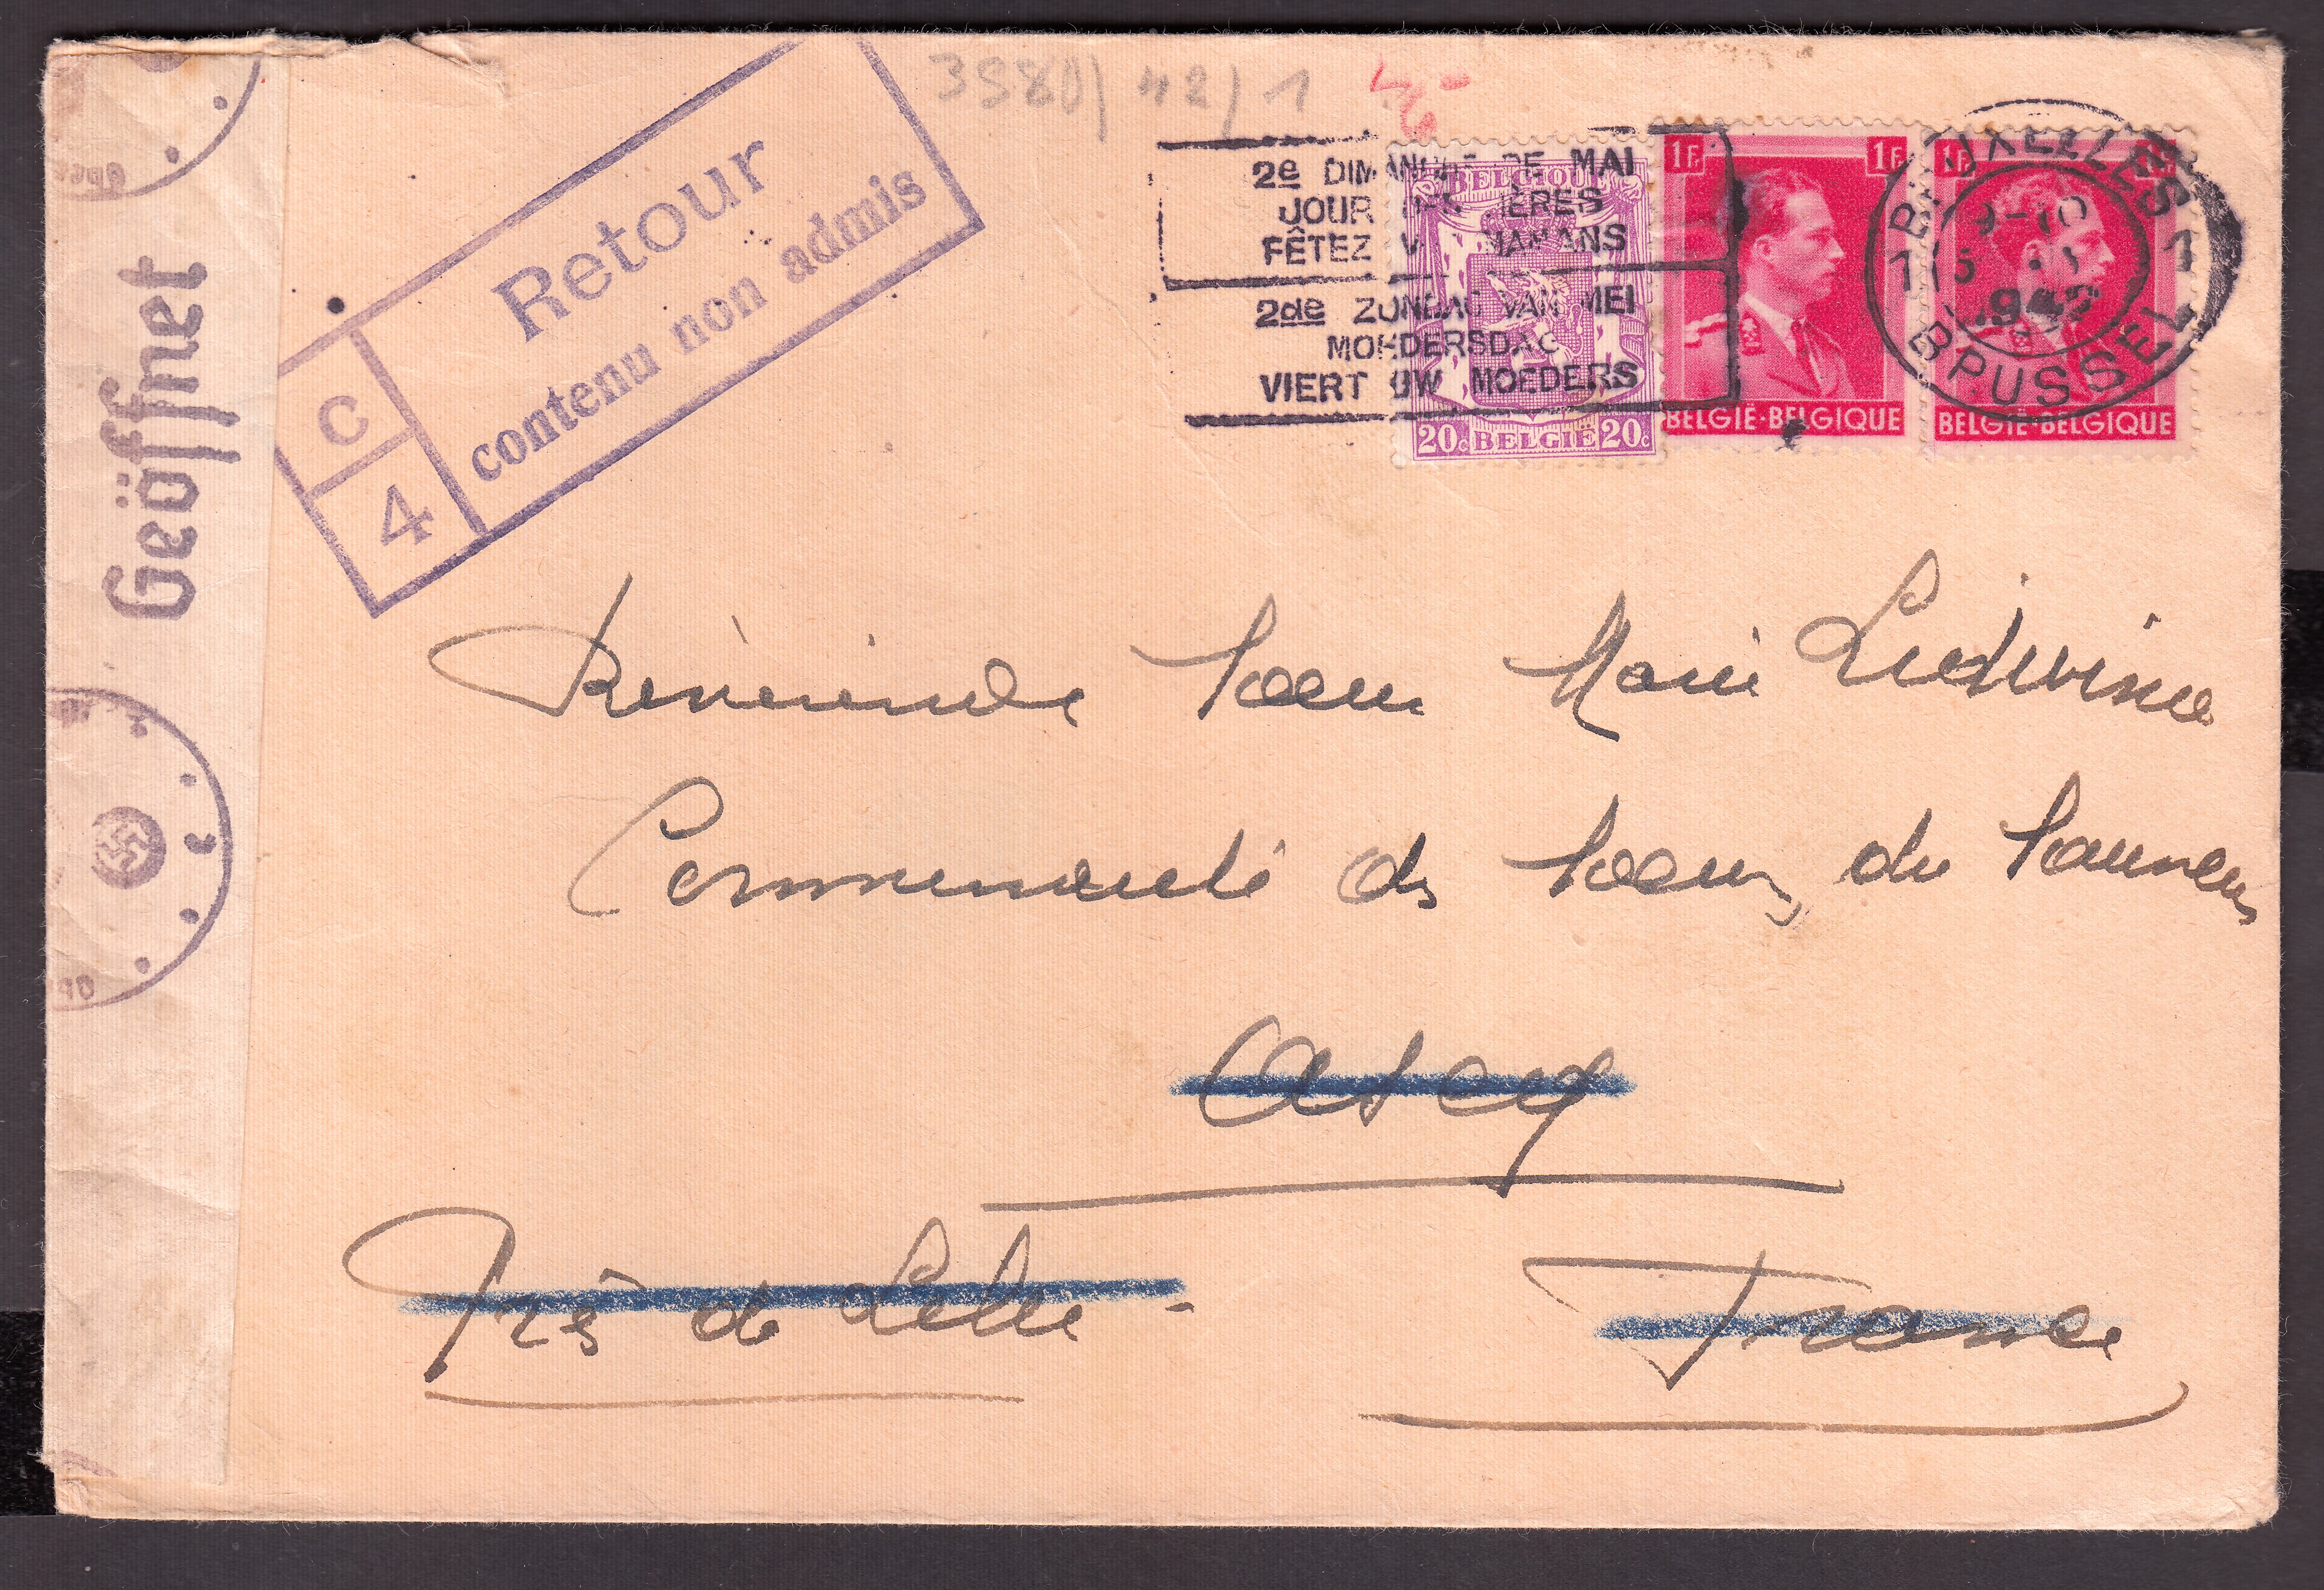 3980/42/1
Retour
contenu non admis
C
4
Geöffnet
2e DIMANCHE DE MAI
JOUR DES MÈRES
FÊTEZ V MAMANS
2de ZONDAG VAN MEI
MOEDERSDAG
VIERT UW MOEDERS
BELGIQUE
20c BELGIË 20c
1Fr 1Fr
BELGIË-BELGIQUE
1Fr
BELGIË-BELGIQUE
BRUXELLES 1
9-10
1942
BRUSSEL 1
Révérende Soeur Marie Ludwina
Communauté des Soeurs du Sauveur
Ascq
Près de Lille -
France